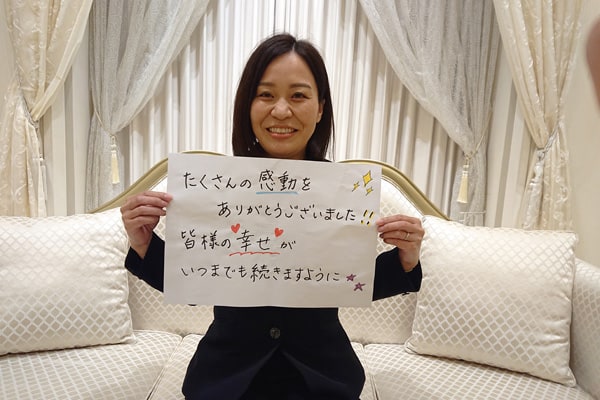 たくさんの感動を
ありがとうございました!!
皆様の幸せが
いつまでも続きますように